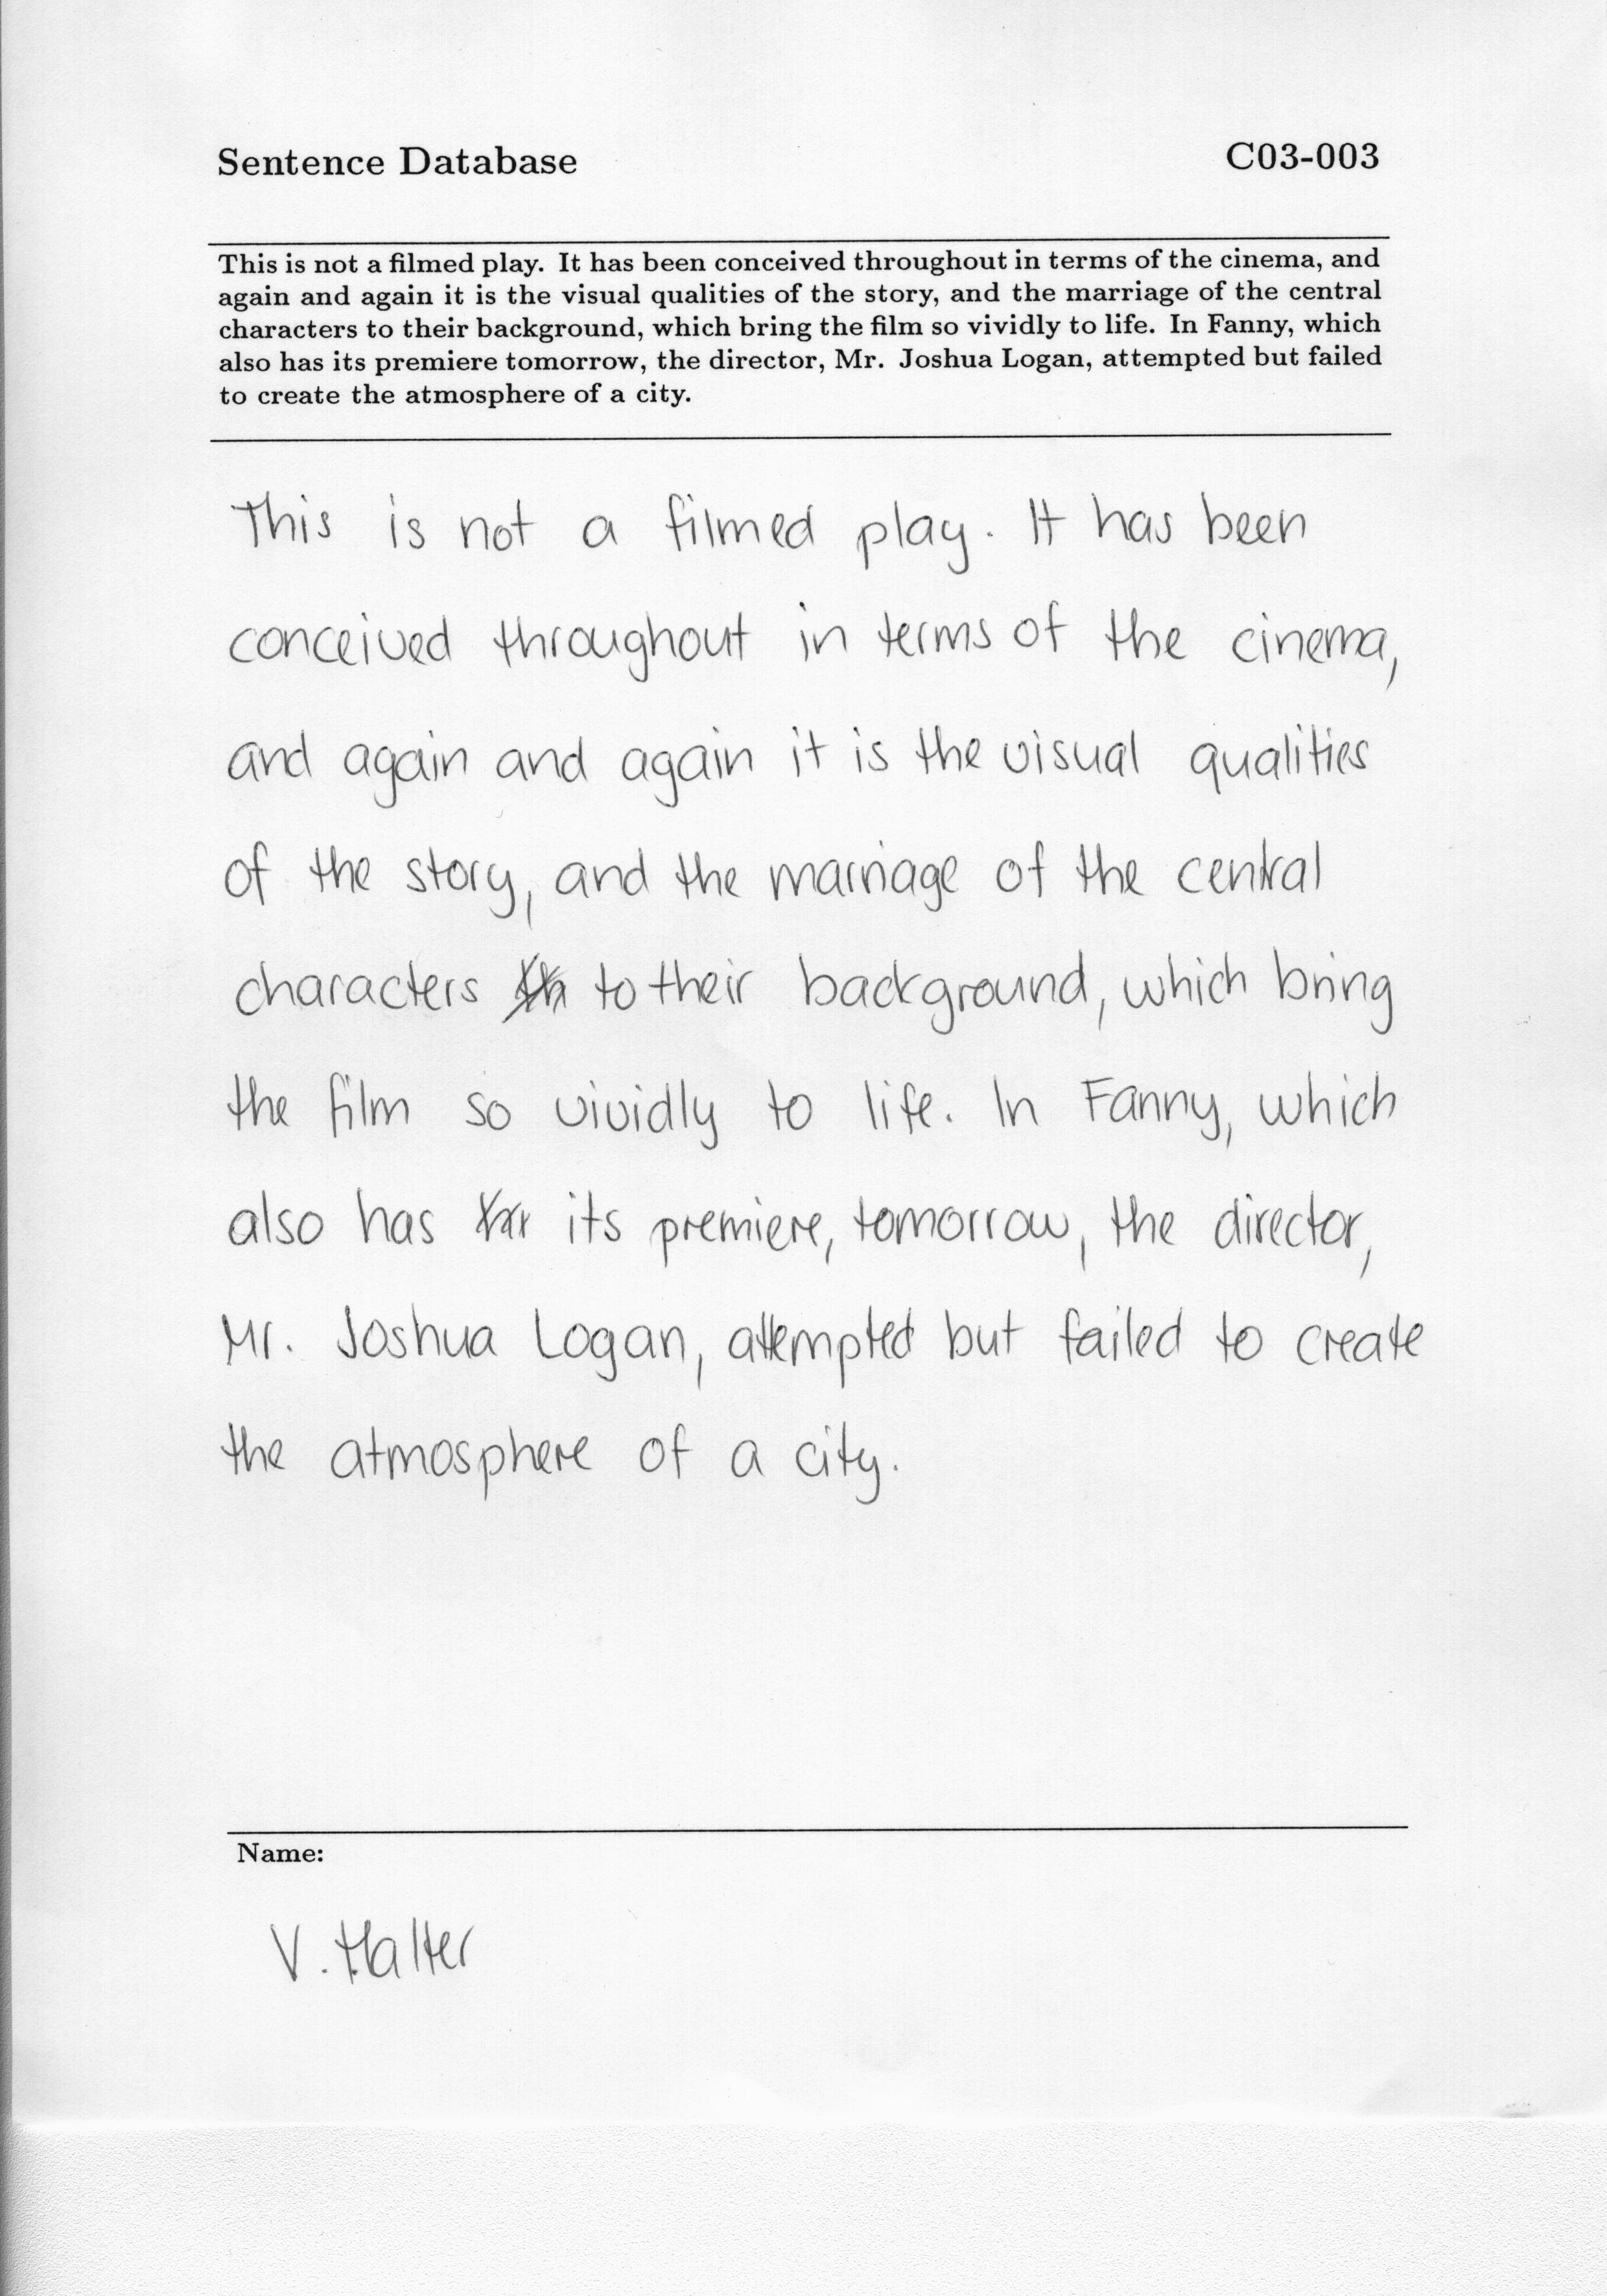 Sentence Database C03-003
This is not a filmed play. It has been conceived throughout in terms of the cinema, and
again and again it is the visual qualities of the story, and the marriage of the central
characters to their background, which bring the film so vividly to life. In Fanny, which
also has its premiere tomorrow, the director, Mr. Joshua Logan, attempted but failed
to create the atmosphere of a city.
This is not a filmed play. It has been
conceived throughout in terms of the cinema,
and again and again it is the visual qualities
of the story, and the marriage of the central
characters to their background, which bring
the film so vividly to life. In Fanny, which
also has its premiere, tomorrow, the director,
Mr. Joshua Logan, attempted but failed to create
the atmosphere of a city.
Name:
V. Halter